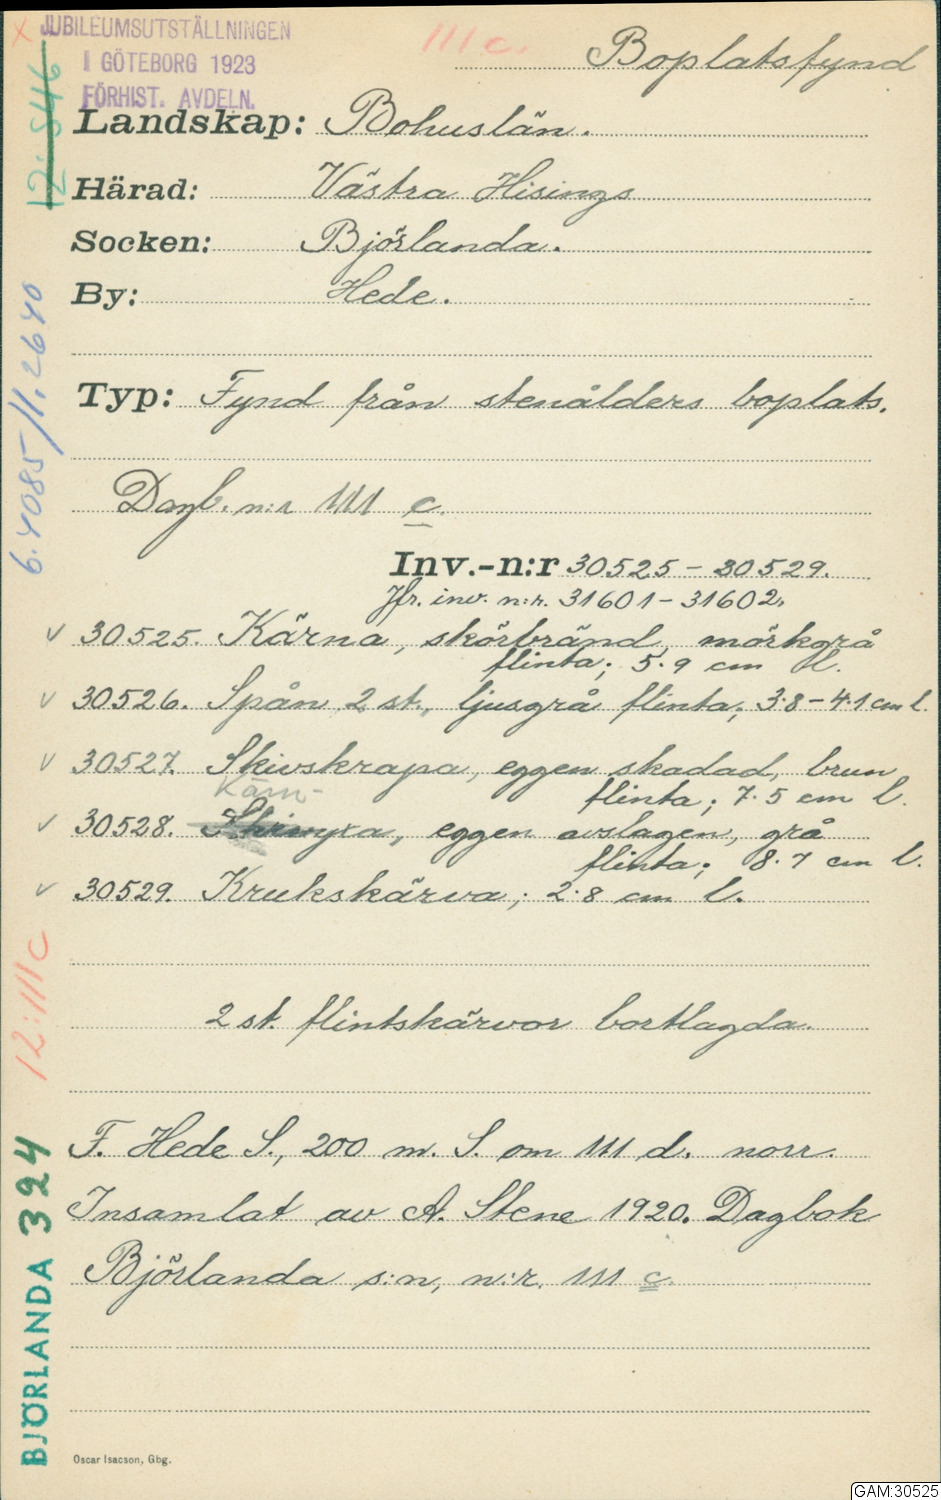 X JUBILEUMSUTSTÄLLNINGEN
I GÖTEBORG 1923
FÖRHIST. AVDELN.
111 c.
Boplatsfynd
Landskap: Bohuslän.
Härad: Västra Hisings
Socken: Björlanda.
By: Hede.
Typ: Fynd från stenålders boplats.
Dagb. n:r 111 c.
Inv.-n:r 30525 – 30529.
Jfr. inv. n:r. 31601 – 31602.
v 30525. Kärna, skörbränd, mörkgrå
flinta; 5.9 cm l.
v 30526. Spån, 2 st., ljusgrå flinta; 3.8 – 4.1 cm l.
v 30527. Skivskrapa, eggen skadad, brun
flinta; 7.5 cm l.
Kärn-
v 30528. yxa, eggen avslagen, grå
flinta; 8.7 cm l.
v 30529. Krukskärva; 2.8 cm l.
2 st. flintskärvor bortlagda.
F. Hede S., 200 m. S. om 111 d. norr.
Insamlat av A. Stene 1920. Dagbok
Björlanda s:n, n:r. 111 c.
Oscar Isacson, Gbg.
12:546
6.4085/1.2640
12:111c
BJÖRLANDA 324
GAM:30525